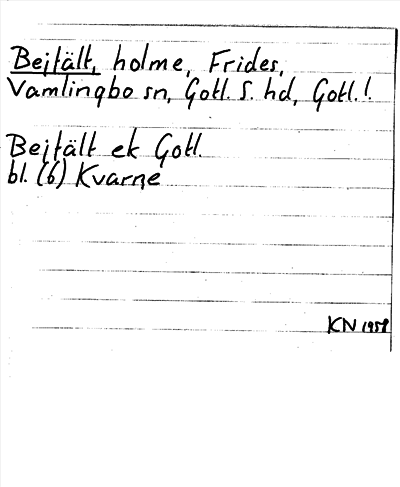 Bejtält, holme, Frides,
Vamlingbo sn, Gotl. S. hd, Gotl.!
Bejtält ek Gotl.
bl. (6) Kvarne
KN 1958